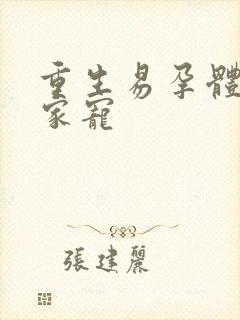 重生易孕體
家寵
張建麗